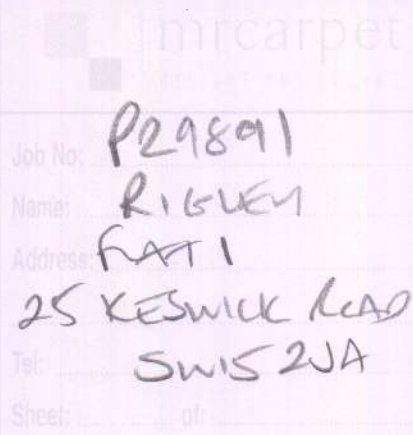 mrcarpet
Job No: P29891
Name: RIGLEY
Address: FLAT 1
25 KESWICK ROAD
Tel: SW15 2JA
Sheet: of: